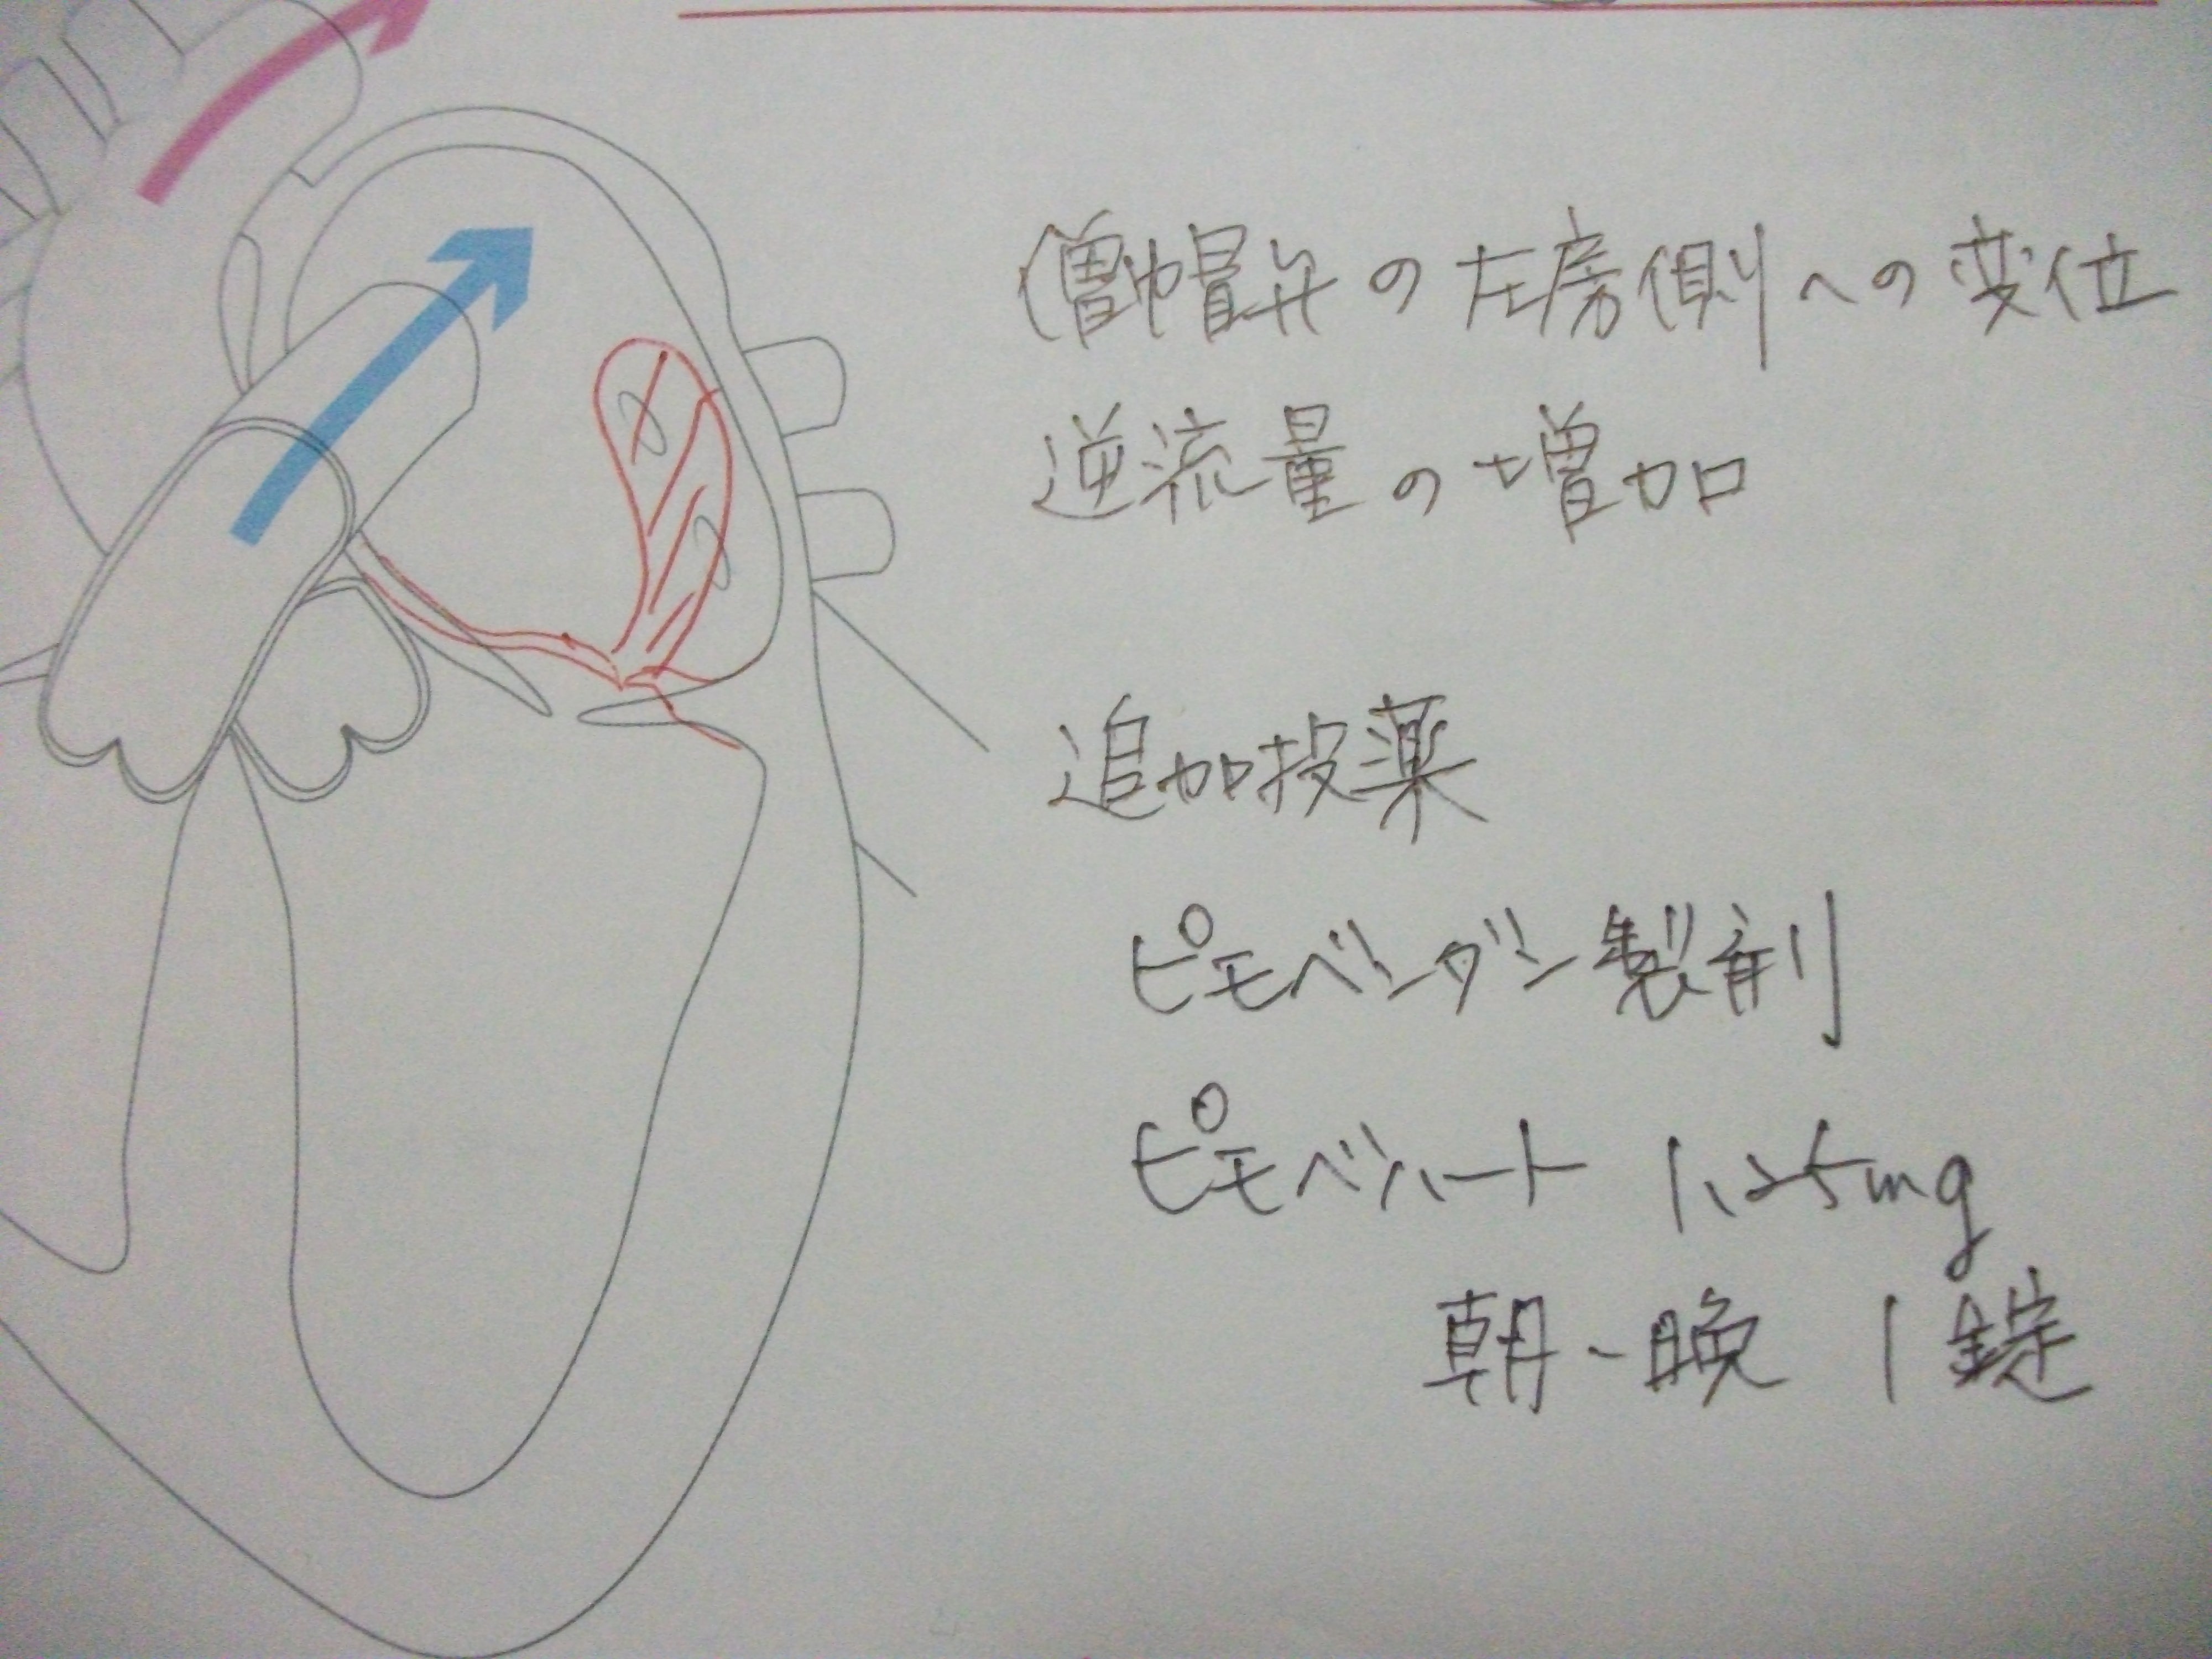 僧帽弁の左房側への変位
逆流量の増加
追加投薬
ピモベンダン製剤
ピモベハート 1.25mg
朝・晩 1錠